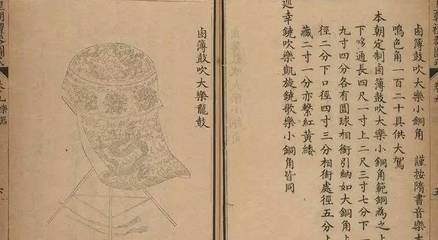 鹵簿鼓吹大樂小銅角 謹按隋書音樂
鳴色角一百二十具供大駕
本朝定制鹵簿鼓吹大樂小銅角範銅為之上
下哆通長四尺一寸上二尺三寸七分下
九寸四分各有圓球相銜引納如大銅角上
徑二分下口徑四寸三分相銜處徑五分上
藏二寸一分亦繫紅黃緌
巡幸鐃吹樂凱旋鐃歌樂小銅角皆同
鹵簿鼓吹大樂龍鼓